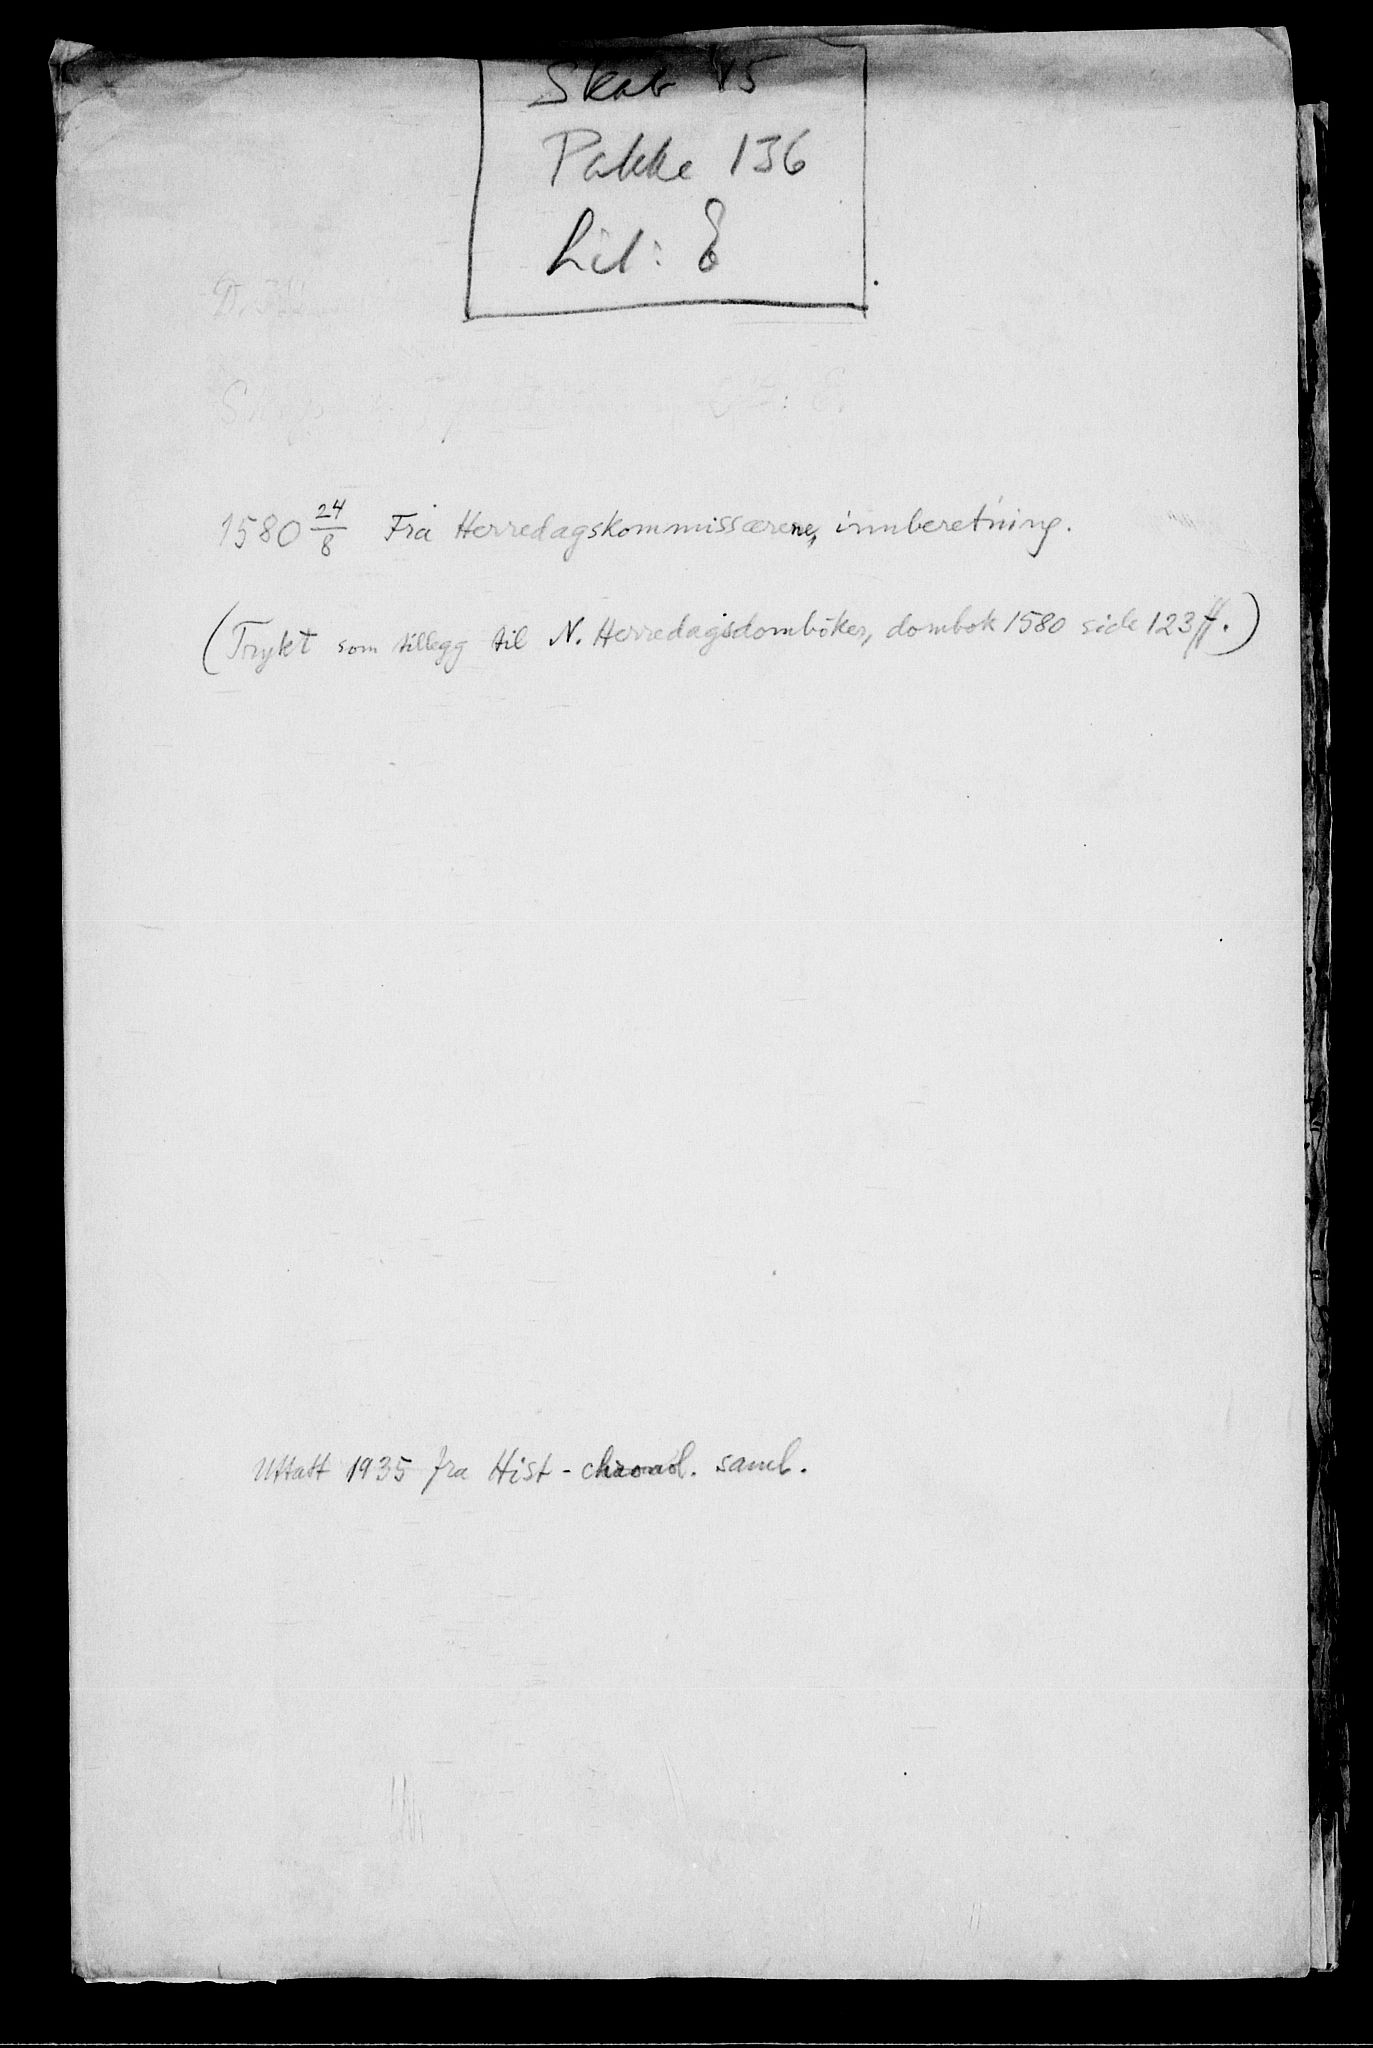 Skab 45
Pakke 136
Lit: E
1580 24/8 Fra Herredagskommissærene, innberetning.
(Trykt som tillegg til N. Herredagsdombøker, dombok 1580 side 123 ff.)
Uttatt 1935 fra Hist-chronol. saml.